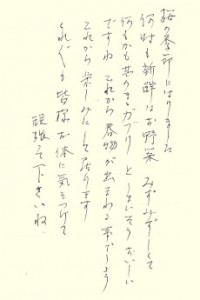 桜の季節になりました
何時も新鮮なお野菜 みずみずしくて
何もかも丸のまゝガブリ としたいそう おいしい
ですね これから春物が出まわる事でしょう
これから楽しみにして居ります
くれぐれも皆様お体に気をつけて
頑張って下さいね